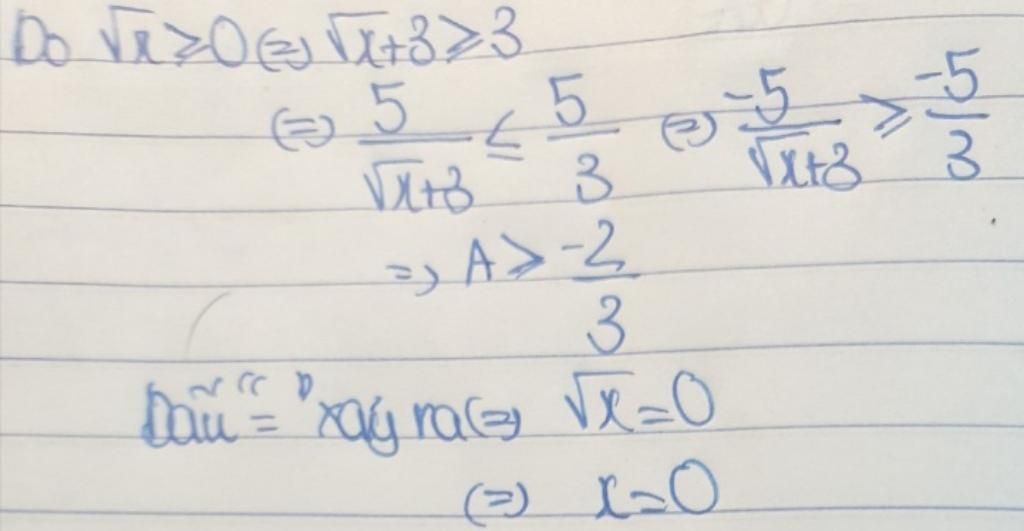 Do √x ≥ 0 (=) √x+3 ≥ 3
(=) 5/(√x+3) ≤ 5/3 (=) -5/(√x+3) ≥ -5/3
=) A ≥ -2/3
Dấu "=" xảy ra (=) √x = 0
(=) x = 0